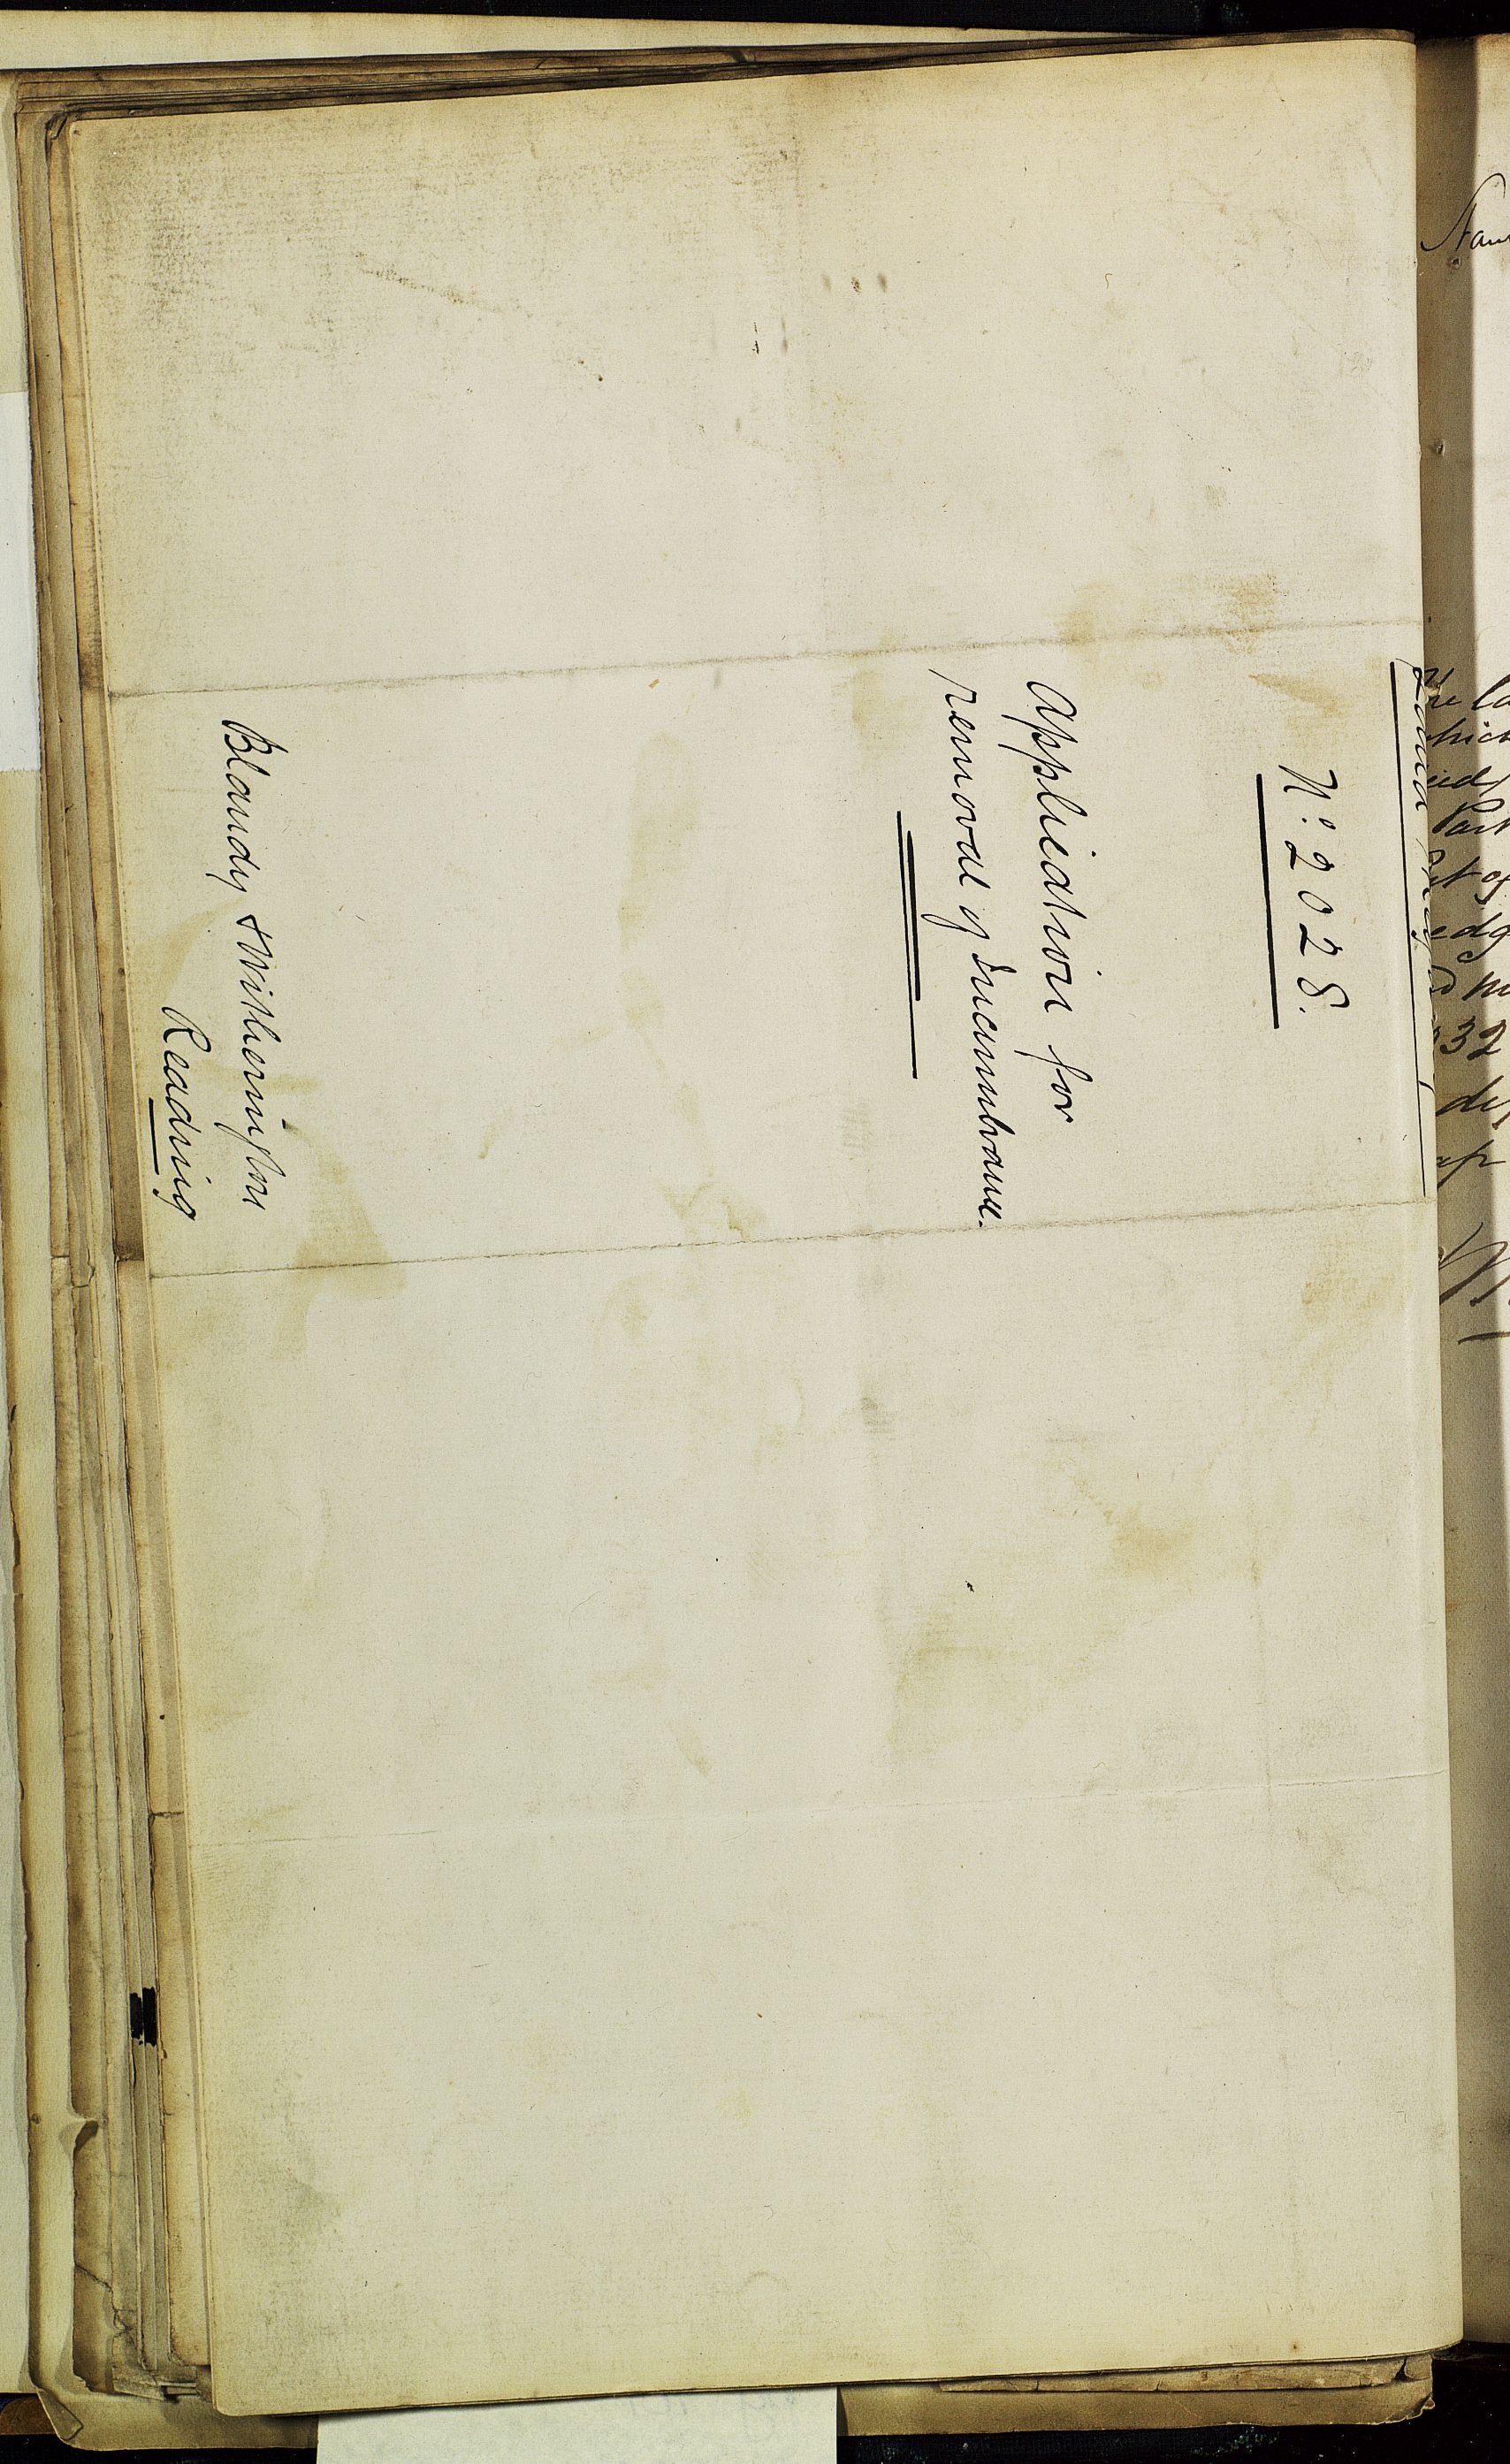 Land Registry
Nº 2028.
Application for
removal of Incumbrance.
Blandy & Witherington
Reading